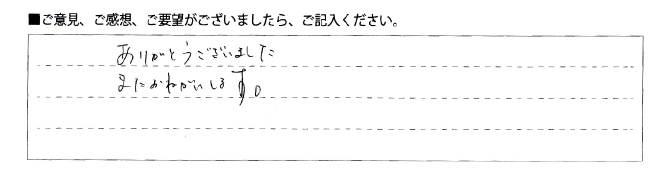 ■ご意見、ご感想、ご要望がございましたら、ご記入ください。
ありがとうございました
またおねがいします。